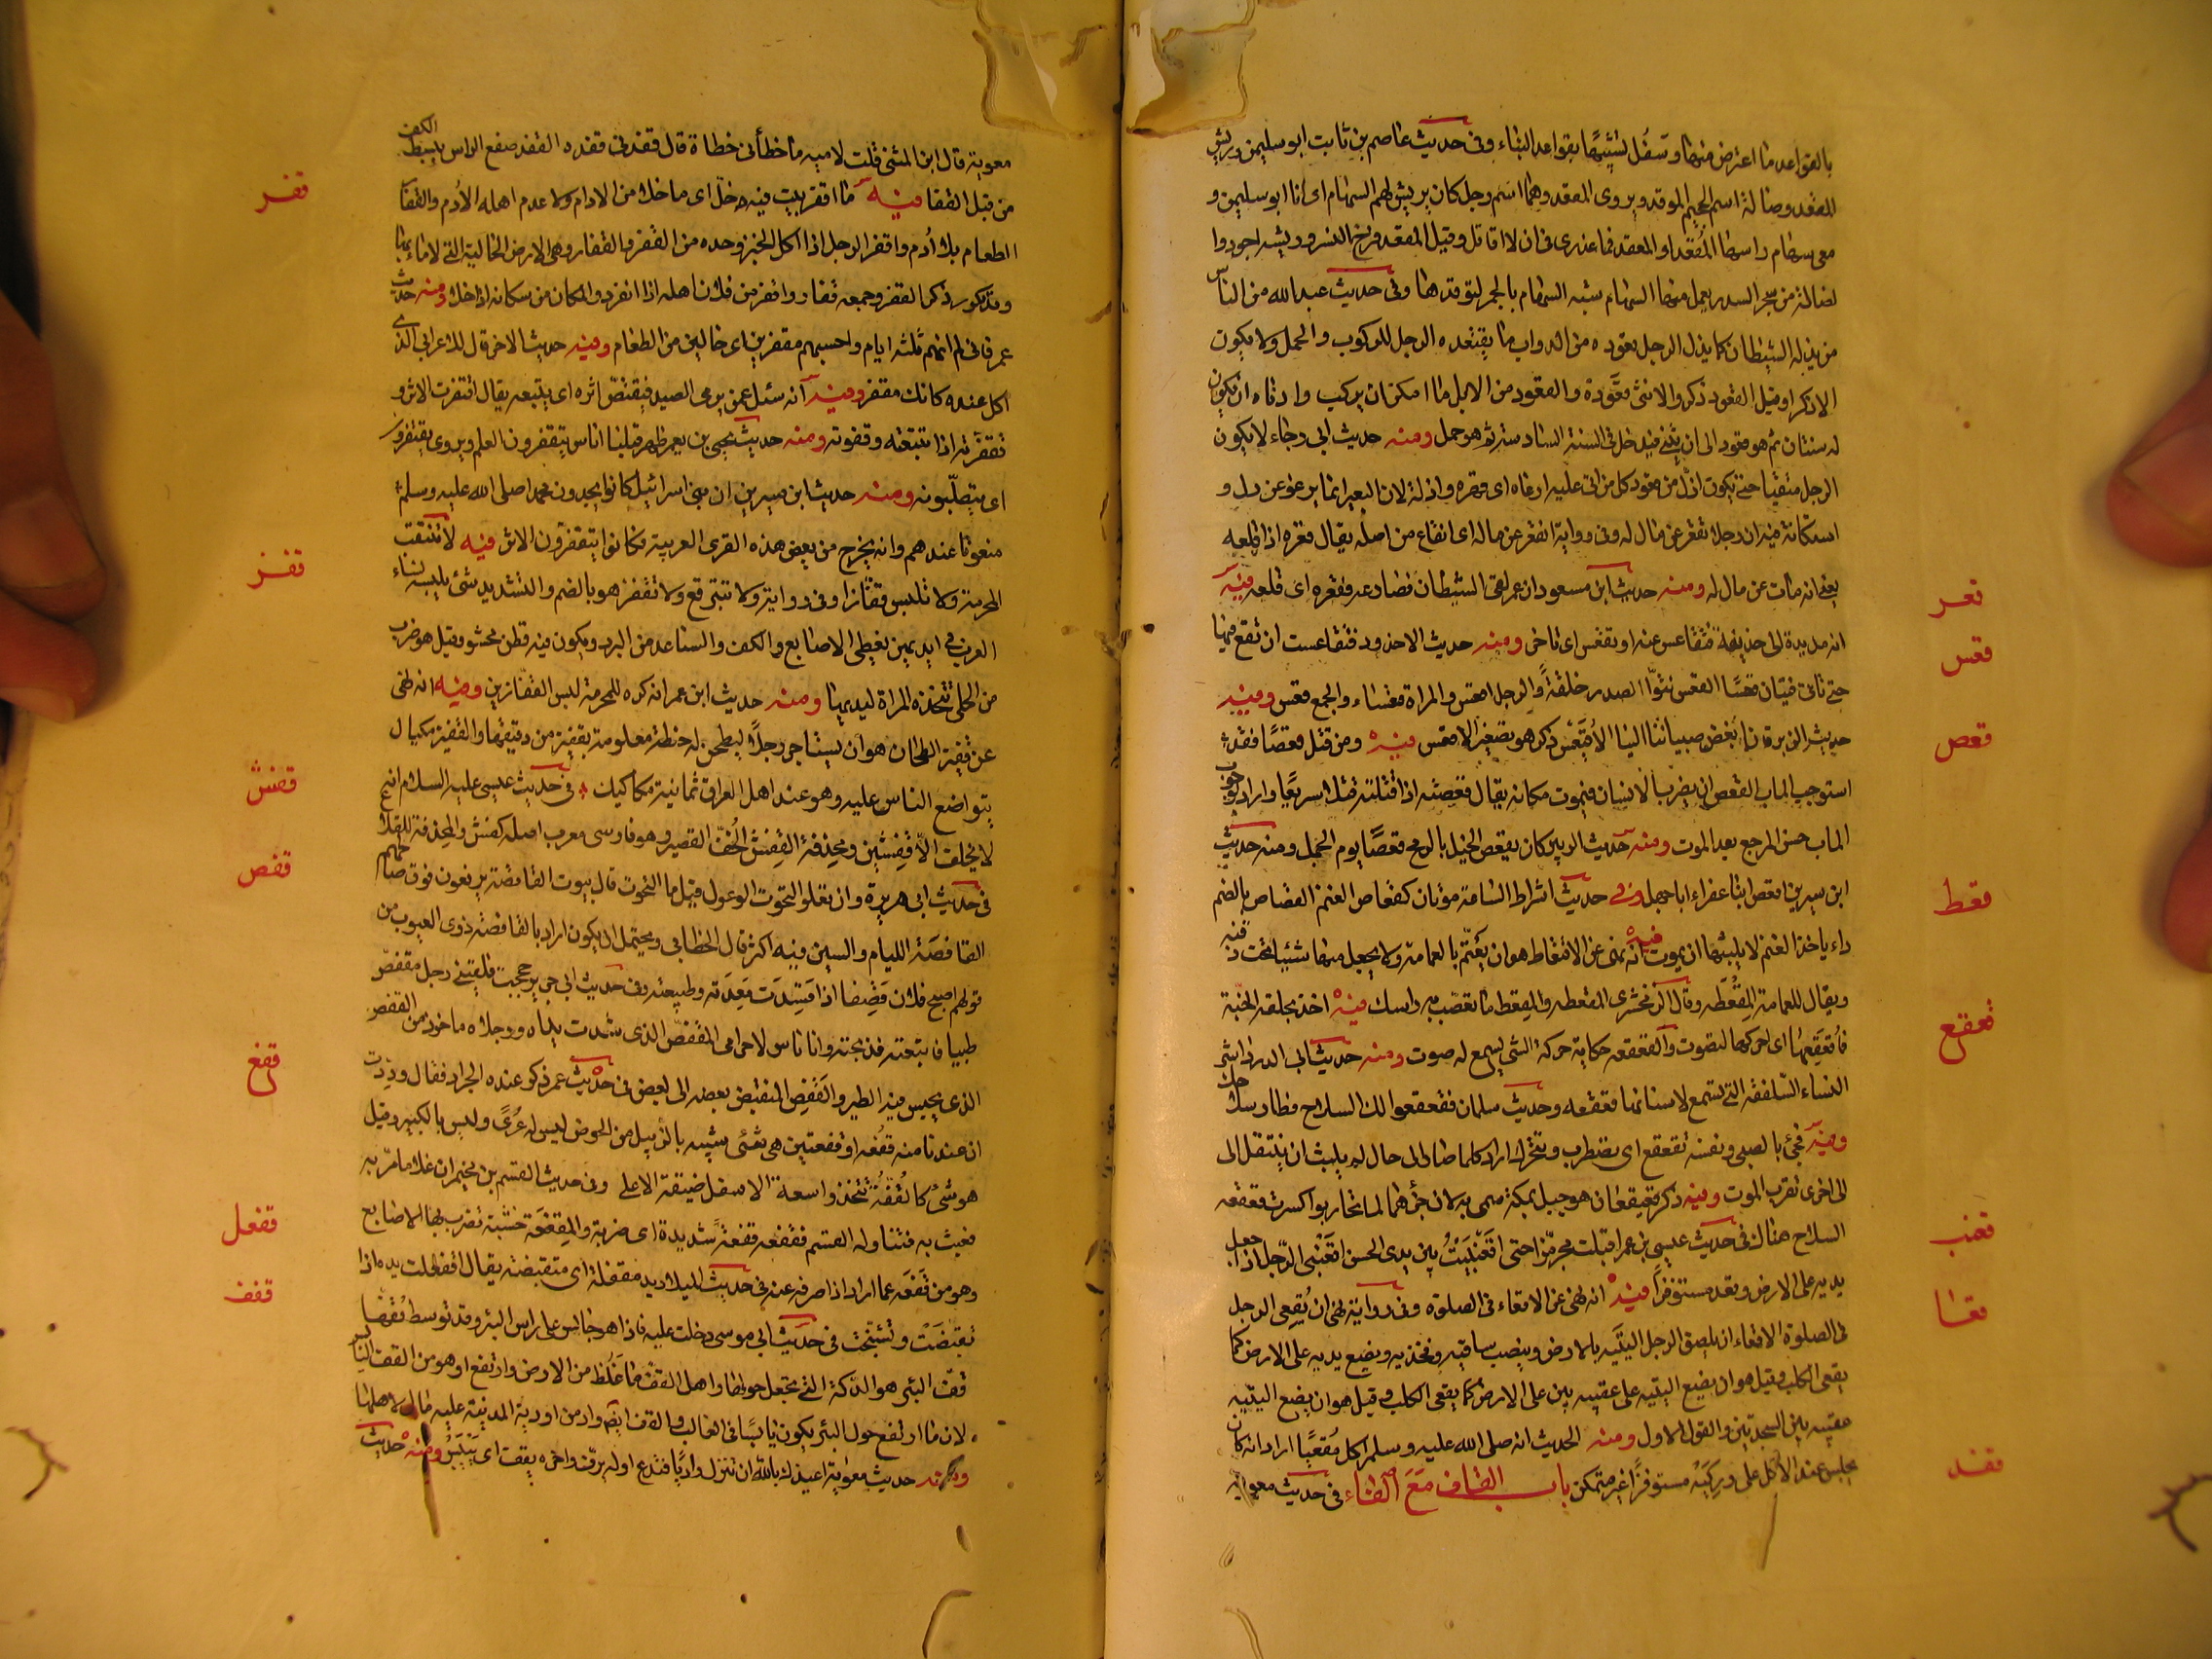 بالقواعد ما اعترض منها وتسفل تشبيها بقواعد البناء وفى حديث عاصم بن ثابت ابو سليمن وريش
المقعد وضالة اسم الجحيم الموقد ويروى المعقد وهما اسم رجل كان يريش لهم السهام اى انا ابو سليمن و
معى سهام راسها المُقعد او المعقد فما عذرى فى ان لا اقاتل وقيل المقعد فرخ النسر وريشه اجود وا
لضالة من شجر السدر يعمل منها السهام شبه السهام بالجمر لتوقدها وفى حديث عبد الله من الناس
من يذله الشيطان كما يذل الرجل قعوده من الدواب ما يقتعده الرجل للركوب والحمل ولا يكون
الا ذكرا وقيل القعود ذكر والانثى قعودة والقعود من الابل ما امكن ان يركب وادناه ان يكون
له سنتان ثم هو قعود الى ان يثنى فيدخل فى السنة السادسة ثم هو جمل ومنه حديث ابى رجاء لا يكون
الرجل متقيا حتى يكون اذل من قعود كل من اتى عليه ارغاه اى قهره واذله لان البعير انما يرغو عن ذل و
استكانة فيه ان رجلا تقعر عن مال له وفى رواية انقعر عن ماله اى انقلع من اصله يقال قعره اذا قلعه
يعنى انه مات عن مال له ومنه حديث ابن مسعود ان عمر لقى الشيطان فصارعه فقعره اى قلعه فيه
انه مد يده الى حذيفة فتقاعس عنه او تقعس اى تاخر ومنه حديث الاخدود فتقاعست ان تقع فيها
حتى تاتى فتيان قعسا القعس نتوّ الصدر خلقة والرجل اقعس والمراة قعساء والجمع قعس ومنه
حديث الزبرقان ابغض صبياننا الينا الاُقيعس ذكره هو تصغير الاقعس فيه ومن قتل قعصا فقد
استوجب الماب القعص ان يضرب الانسان فيموت مكانه يقال قعصته اذا قتلته قتلا سريعا واراد بوجوب
الماب حسن المرجع بعد الموت ومنه حديث الزبير كان يقعص الخيل بالرمح قعصا يوم الجمل ومنه حديث
ابن سيرين اقعص ابنا عفراء ابا جهل وفى حديث اشراط الساعة موتان كقعاص الغنم القعاص بالضم
داء ياخذ الغنم لا يلبثها ان يموت فيه انه نهى عن الاقتعاط هو ان يَعْتَمّ بالعمامة ولا يجعل منها شيئا تحت ذقنه
ويقال للعمامة المِقْعَطة وقال الزمخشرى المقعطة والمقعط ما تعصب به راسك فيه اخذ بحلقة الجنة
فاُقَعْقِعُها اى احركها لتصوت والقعقعة حكاية حركة الشئ يسمع له صوت ومنه حديث ابى الدرداء شر
النساء السلفعة التى تسمع لاسنانها قعقعة وحديث سلمان فقعقعوا لك السلاح فطار سلاحك
وفيه فجئ بالصبى ونفسه تقعقع اى تضطرب وتتحرك اراد كلما صار الى حال لم يلبث ان ينتقل الى
الى اخرى تقرب الموت وفيه ذكر قعيقعان هو جبل بمكة سمى به لان جرهما لما تحاربوا اكسرت قعقعة
السلاح هناك فى حديث عيسى بن عمر اقبلت مجرمزا حتى اقعنبيت بين يدى الحسن اقعنبى الرجل اذا جعل
يديه على الارض وقعد مستوفزا فيه انه نهى عن الاقعاء فى الصلوة وفى رواية نهى ان يُقعى الرجل
فى الصلوة الاقعاء ان يلصق الرجل اليتيه بالارض وينصب ساقيه وفخذيه ويضع يديه على الارض كما
يقعى الكلب وقيل هو ان يضيع اليتيه على عقبيه بين على الارض كما يقعى الكلب وقيل هو ان يضيع اليتيه
عقبيه بين السجدتين والقول الاول ومنه الحديث انه صلى الله عليه وسلم اكل مُقعيا اراد انه كان
يجلس عند الاكل على وركيه مستوفزا غير متمكن باب القاف مع الفاء فى حديث معوية
قعر
قعس
قعص
قعط
قعقع
قعنب
قعا
قفد
معوية قال ابن المثنى قلت لامية ما خطأنى خطاة قال قفدنى قفدة القفد صفع الراس ببسط الكف
من قبل القفا فيه ما اقفر بيت فيه خلّ اى ما خلا من الادام ولا عدم اهله الاُدم والقفار
الطعام بلا اُدم واقفر الرجل اذا اكل الخبز وحده من القفر والقفار وهى الارض الخالية التى لا ماء بها
وقد تكرر ذكر القفر وجمعه قفار واقفر من فلان اهله اذا انفرد والمكان من سكانه اذا خلا ومنه حديث
عمر فانى لم اتهم ثلثة ايام واحسبهم مقفرين اى خالين من الطعام ومنه حديث الاخر قال للاعرابى الذى
اكل عنده كانك مقفر وفيه انه سئل عمن يرمى الصيد فيقتفر اثره اى يتتبعه يقال اقتفرت الاثر و
تقفرته اذا تتبعته وقفوته ومنه حديث يحيى بن يعمر ظهر قبلنا اناس يتقفرون العلم ويروى يقتفرون
اى يتطلبونه ومنه حديث ابن سيرين ان بنى اسرائيل كانوا يجدون محمدا صلى الله عليه وسلم
منعوتا عندهم وانه يخرج من بعض هذه القرى العربية فكانوا يتقفرون الاثر فيه لا تنتقب
المحرمة ولا تلبس قفازا وفى رواية ولا تتبرقع ولا تقفز هو بالضم والتشديد شئ يلبسه نساء
العرب فى ايديهن تغطى الاصابع والكف والساعد من البرد ويكون فيه قطن محشو وقيل هو ضرب
من الحلى تتخذه المراة ليديها ومنه حديث ابن عمر انه كره للمحرمة لبس القفازين وفيه انه نهى
عن قفيز الطحان هو ان يستاجر رجلا ليطحن له حنطة معلومة بقفيز من دقيقها والقفيز مكيال
يتواضع الناس عليه وهو عند اهل العراق ثمانية مكاكيك فى حديث عيسى عليه السلام انه
لم يخلف الا قَفْشَيْن ومخذفة القفش الخُفّ القصير وهو فارسى معرب اصله كفش والمخذفة المقلاع
فى حديث ابى هريرة وان تعلو التحوت الوعول قيل ما التحوت قال بيوت القافصة يرفعون فوق صالحيهم
القافصة الليام والسين فيه اكثر قال الخطابى ويحتمل ان يكون اراد بالقافصة ذوى العيوب من
قولهم اصبح فلان قَفِصا اذا فسدت معدته وطبيعته وفى حديث ابى جرير حججت فلقينى رجل مقفص
ظبيا فابتعته فذبحته وانا ناس لاحرامى المقفص الذى شدت يداه ورجلاه ماخوذ من القفص
الذى يحبس فيه الطير والقَفِص المنقبض بعضه الى بعض فى حديث عمر ذكر عنده الجراد فقال وددت
ان عندنا منه قفعة او قفعتين هى شئ شبيه بالزبيل من الخوص ليس له عُرًى وليس بالكبير وقيل
هو شئ كالقُفّة تتخذ واسعة الاسفل ضيقة الاعلى وفى حديث القسم بن مخيمر ان غلاما مرّ به
فعبث به فتناوله القسم فقفعه قفعة شديدة اى ضربة والمِقفَعَة خشبة تضرب بها الاصابع
وهو من قَفَعَه عما اراد اذا صرفه عنه فى حديث الميلاد يد مقفعلة اى متقبضة يقال اقفعلت يده اذا
تقبضت وتشنجت فى حديث ابى موسى دخلت عليه فاذا هو جالس على راس البئر وقد توسط قُفّها
قف البئر هو الدكة التى تجعل حولها واصل القف ما غلظ من الارض وارتفع او هو من القف اليابس
لان ما ارتفع حول البئر يكون يابسا فى الغالب والقف ايضا واد من اودية المدينة عليه مال لاهلها
ومنه حديث معوية اعيذك بالله ان تنزل واديا فتدع اوله يرف واخره يقف اى يَيْبَس ومنه حديث
قفر
قفز
قفش
قفص
قفع
قفعل
قفف